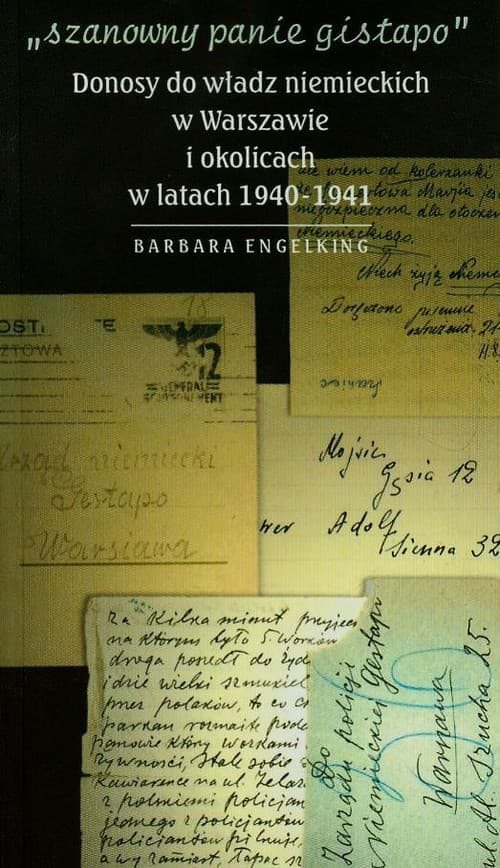 „szanowny panie gistapo”
Donosy do władz niemieckich
w Warszawie
i okolicach
w latach 1940-1941
BARBARA ENGELKING
nie wiem od koleżanki
Marja jes
niebezpieczna dla otoczen
niemieckiego.
Niech żyją Niemc
Doręczono pisemne
18
OST
TE
ZTOWA
12
GENERAL
GOUVERNEMENT
Urząd niemiecki
Gestapo
Warsiawa
Mojsie
Gęsia 12
wer Adolf
Sienna 32
za kilka minut przyjec
na którym było 5. Worków
droga poszedł do żyd
idzie wielki szmukiel
przez polaków, to co
parkan rozmaite
panowie który workami
żywności, stale sobie
Kawiarence na ul. Żelaz
z polskiemi policjan
jednego z policjantów
policjantów pilnuje,
a wy zamiast, łapac sz
Do
Zarządu policji
Niemieckiej Gestapo
Warszawa
ul. Al. Szucha 25.